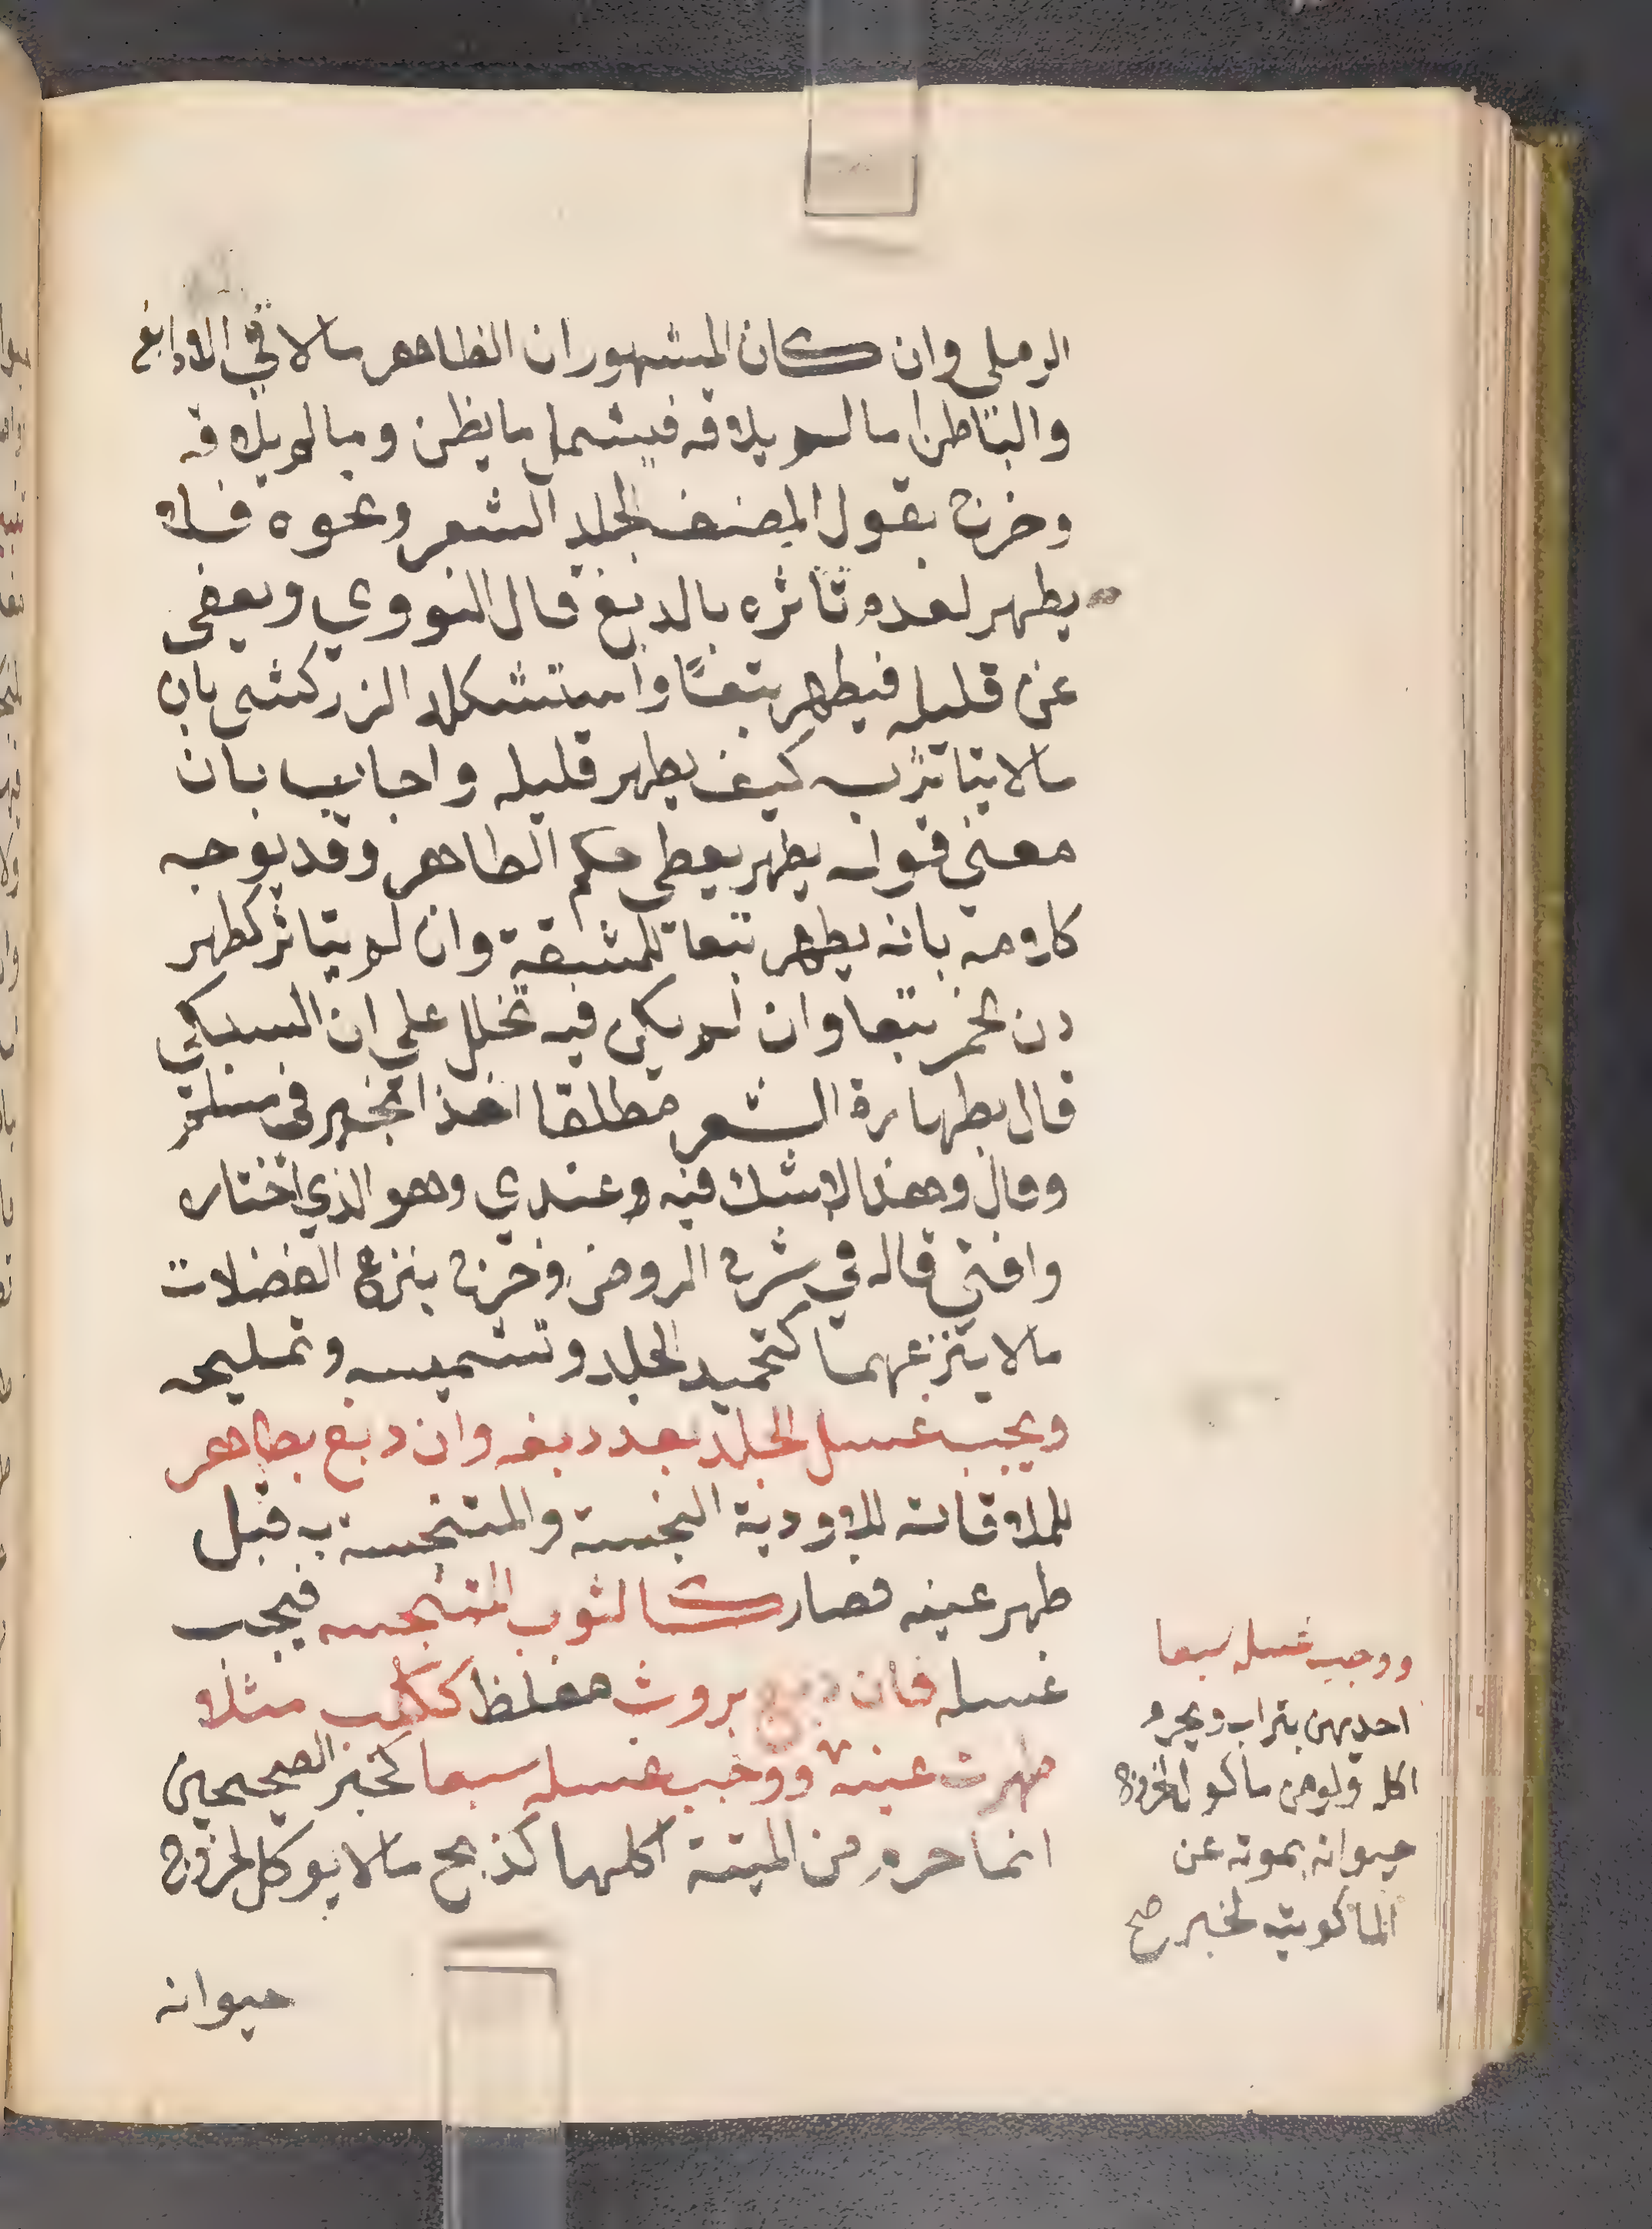 الرملي وان كان المشهور ان الظاهر مالاقي الدابغ
والباطن ما لم يلاقه فيشمل ما يظن وما لم يلاقه
وخرج بقول المصنف الجلد الشعر ونحوه فلا
يطهر لعدم تاثره بالدبغ قال النووي ويعفى
عن قليله فيطهر تبعا واستشكله الزركشي بان
مالا يتاثر به كيف يطهر قليله واجاب بان
معنى قوله يطهر يعطى حكم الطاهر وقد يوجه
كلامه بانه يطهر تبعا للمشقة وان لم يتاثر كطهر
دن الخمر تبعا وان لم يكن فيه تخلل على ان السبكي
قال بطهارة الشعر مطلقا اخذا بخبر في مسلم
وقال وهذا لا شك فيه وعندي وهو الذي اختاره
وافتي قاله في شرح الروض وخرج بنزع الفضلات
مالا ينزعها كتجميد الجلد وتشميسه وتمليحه
ويجب غسل الجلد بعد دبغه وان دبغ بطاهر
لملاقاته للادوية النجسة والمتنجسة به قبل
طهر عينه فصار كالثوب المتنجس فيجب
غسله فان دبغ بروث مغلظ ككلب مثلا
طهرت عينه ووجب غسله سبعا كخبر الصحيحين
انما حرم من الميتة اكلها كذبح مالا يوكل لخروج
حيوانه
ووجب غسله سبعا
احديهن بتراب ويحرم
اكله ولو من ماكول لخروج
حيوانه بموته عن
الماكولية لخبر صح